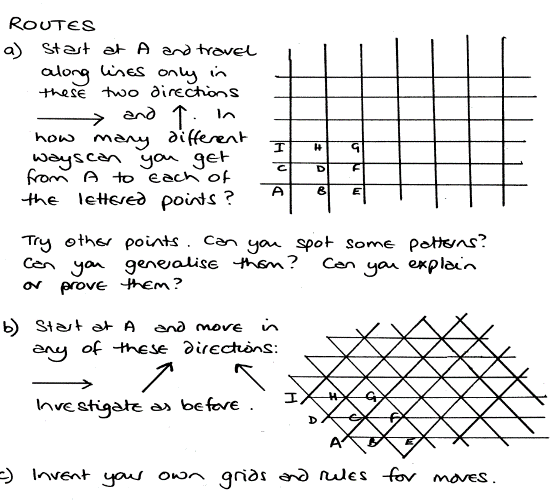 ROUTES
a) Start at A and travel
along lines only in
these two directions
→ and ↑. In
how many different
ways can you get
from A to each of
the lettered points?
I H G
C D F
A B E
Try other points. Can you spot some patterns?
Can you generalise them? Can you explain
or prove them?
b) Start at A and move in
any of these directions:
Investigate as before.
I H G
D C F
A B E
c) Invent your own grids and rules for moves.